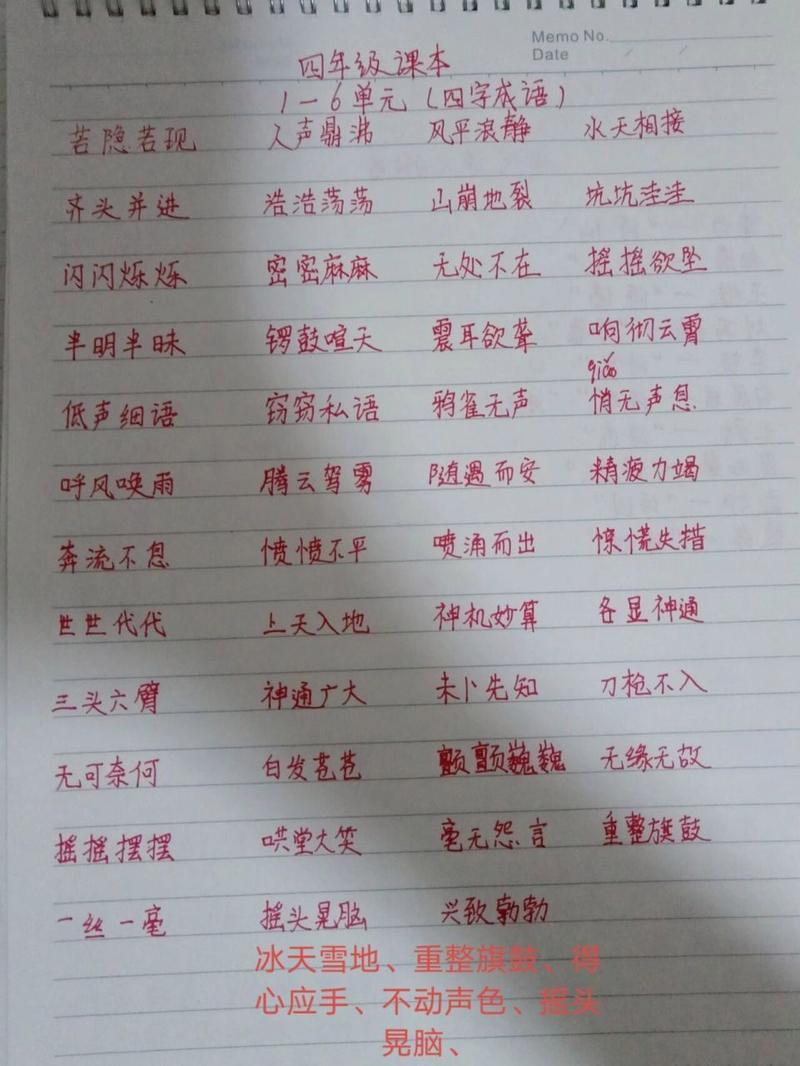 Memo No.
Date
四年级课本
1-6单元(四字成语)
若隐若现 人声鼎沸 风平浪静 水天相接
齐头并进 浩浩荡荡 山崩地裂 坑坑洼洼
闪闪烁烁 密密麻麻 无处不在 摇摇欲坠
半明半昧 锣鼓喧天 震耳欲聋 响彻云霄
qiǎo
低声细语 窃窃私语 鸦雀无声 悄无声息
呼风唤雨 腾云驾雾 随遇而安 精疲力竭
奔流不息 愤愤不平 喷涌而出 惊慌失措
世世代代 上天入地 神机妙算 各显神通
三头六臂 神通广大 未卜先知 刀枪不入
无可奈何 白发苍苍 颤颤巍巍 无缘无故
摇摇摆摆 哄堂大笑 毫无怨言 重整旗鼓
一丝一毫 摇头晃脑 兴致勃勃
冰天雪地、重整旗鼓、得
心应手、不动声色、摇头
晃脑、